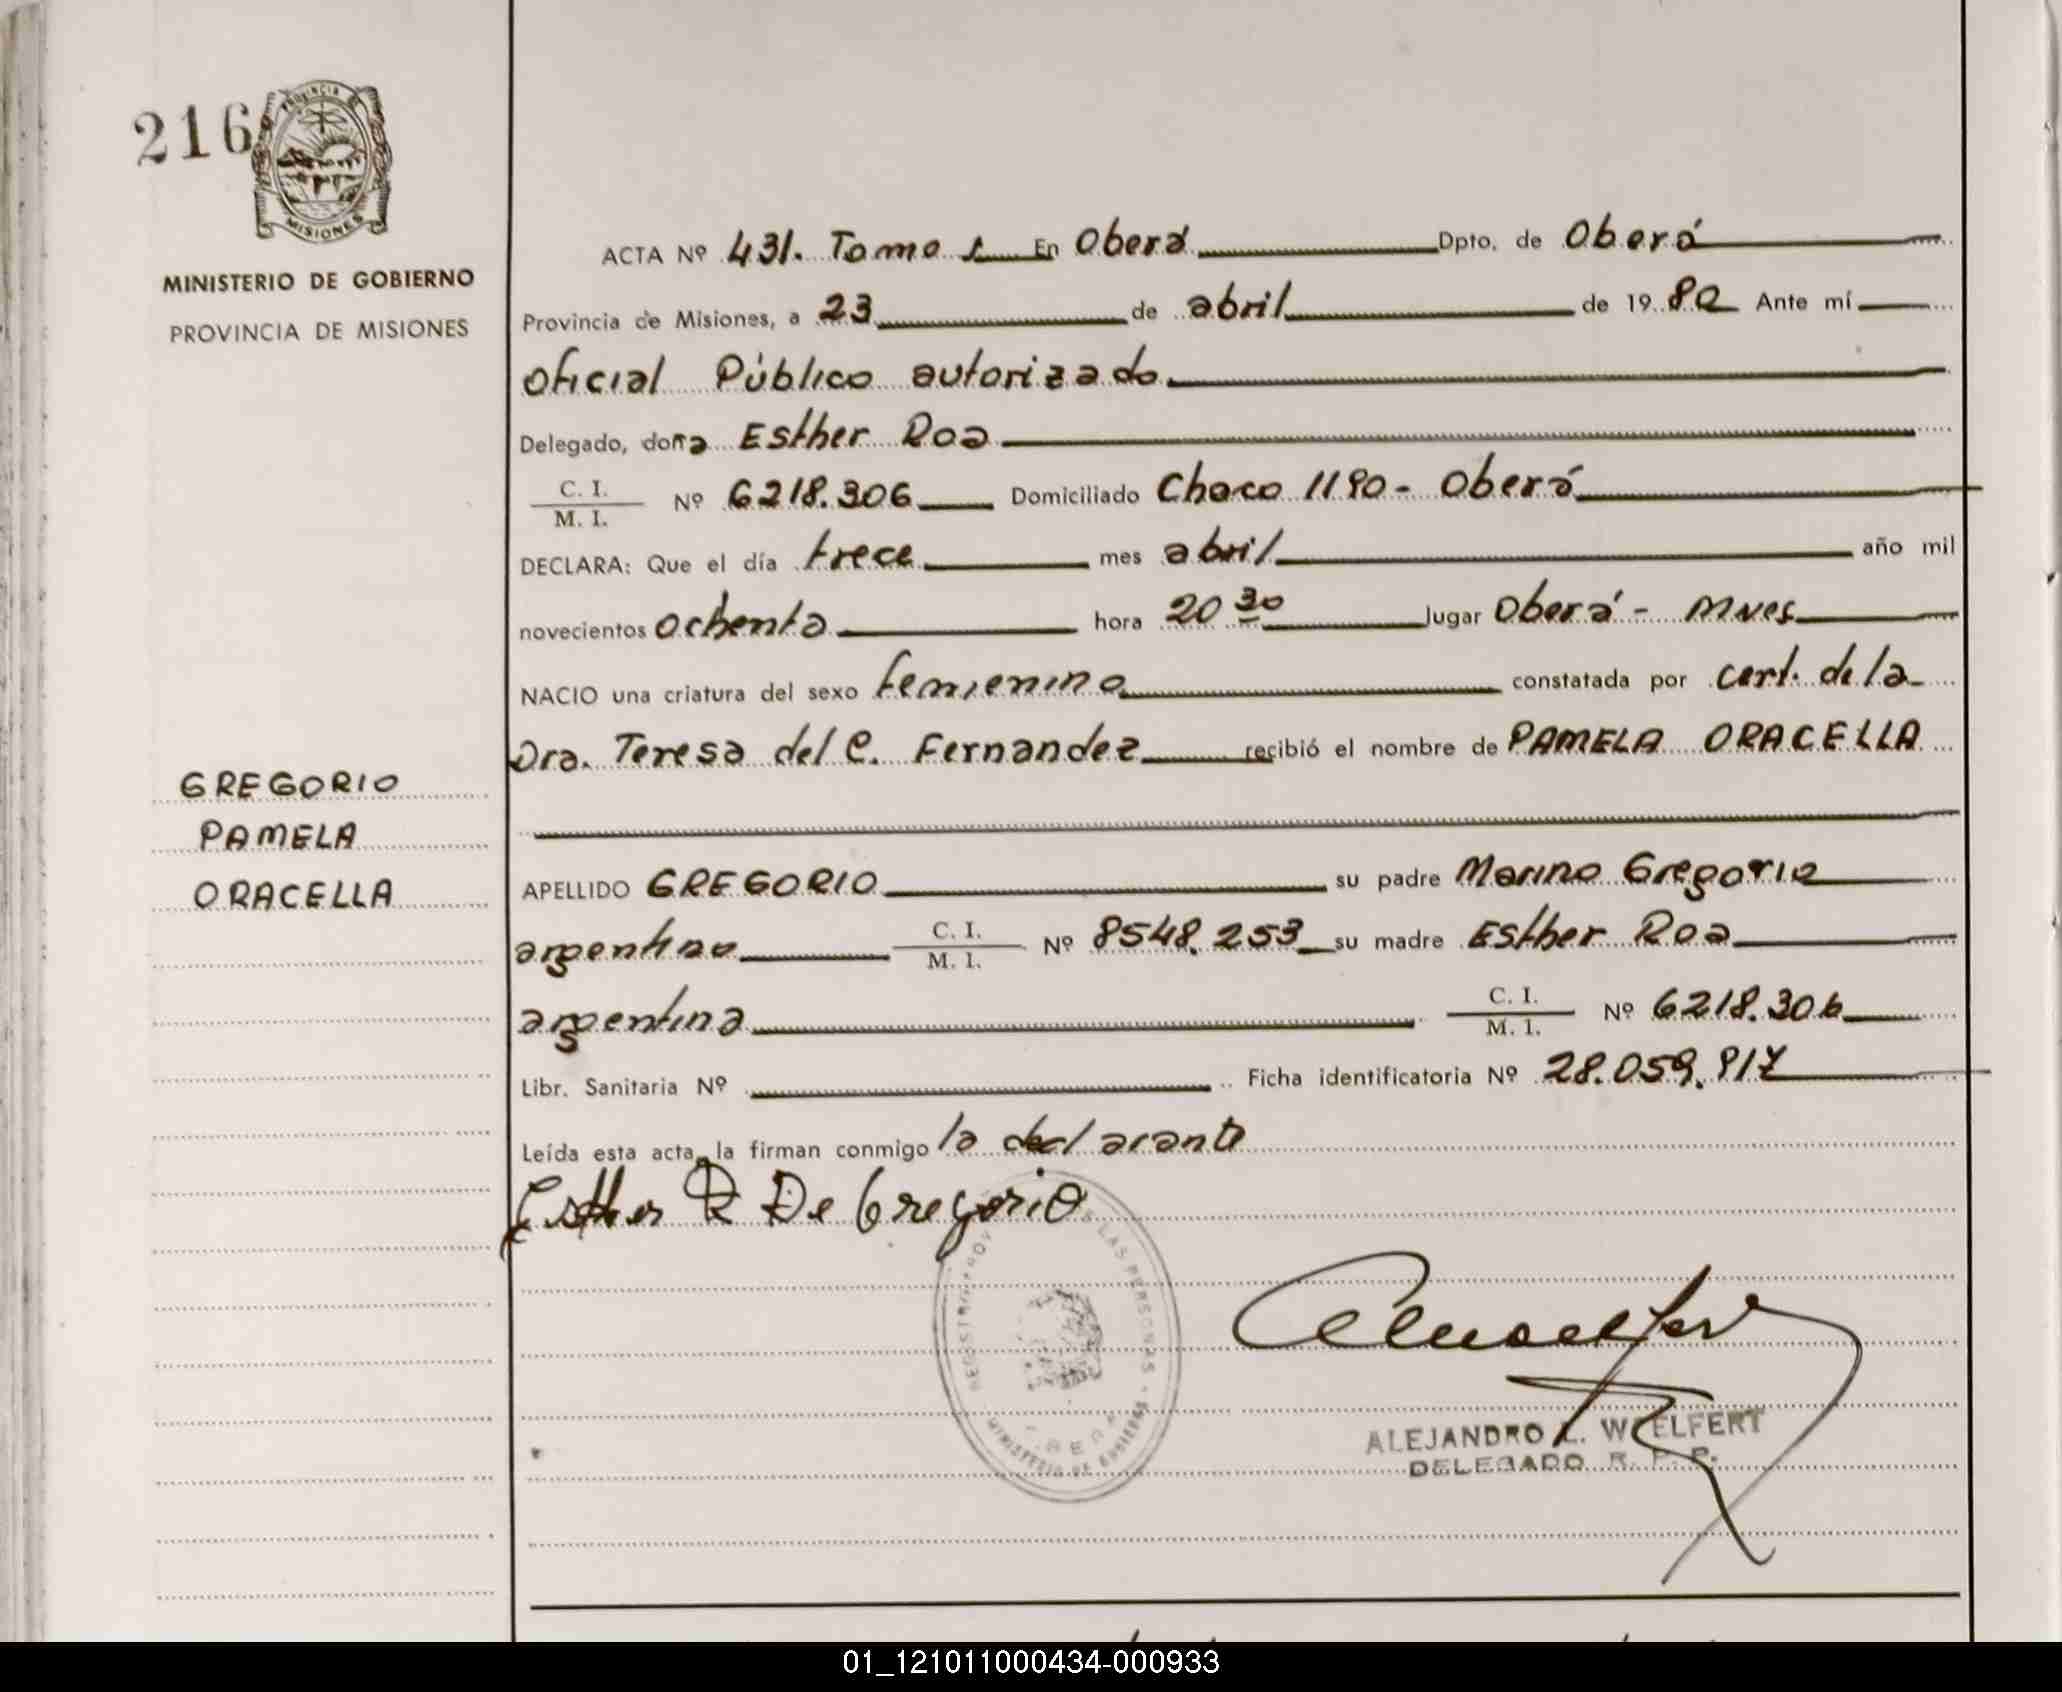 216
PROVINCIA DE
MISIONES
MINISTERIO DE GOBIERNO
PROVINCIA DE MISIONES
GREGORIO
PAMELA
ORACELLA
ACTA Nº 431. Tomo I En Oberá Dpto. de Oberá
Provincia de Misiones, a 23 de abril de 1980 Ante mí
Oficial Público autorizado
Delegado, doña Esther Roa
C. I.
M. I. Nº 6218.306 Domiciliado Chaco 1190 - Oberá
DECLARA: Que el día trece mes abril año mil
novecientos ochenta hora 20 30 lugar Oberá - Mnes
NACIO una criatura del sexo femienino constatada por cert. de la
Dra. Teresa del C. Fernandez recibió el nombre de PAMELA ORACELLA
APELLIDO GREGORIO su padre Marino Gregorio
argentino C. I.
M. I. Nº 8548.253 su madre Esther Roa
argentina C. I.
M. I. Nº 6218.306
Libr. Sanitaria Nº Ficha identificatoria Nº 28.059.917
Leída esta acta, la firman conmigo la declarante
Esther R De Gregorio
DE LAS PERSONAS - MINISTERIO DE GOBIERNO
ALEJANDRO L. WAELFERT
DELEGADO R. P. P.
01_121011000434-000933